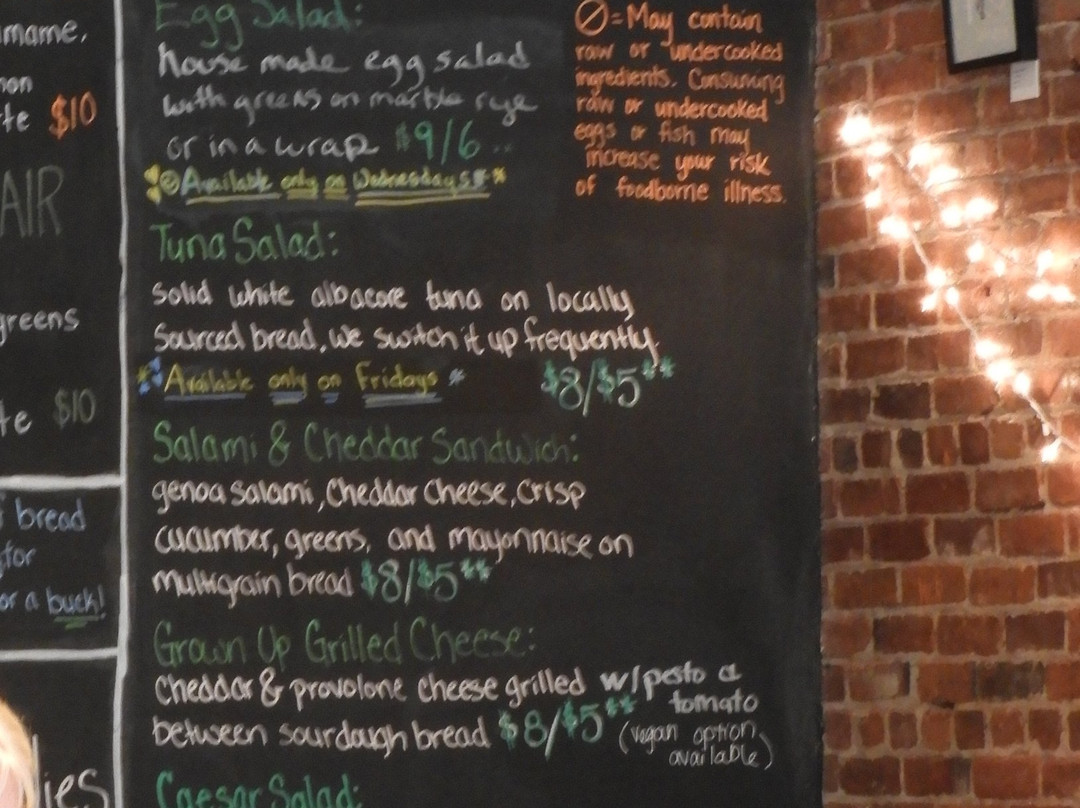 mame.
$10
AIR
greens
$10
bread
for
or a buck!
ies
Egg Salad:
house made egg salad
with greens on marble rye
or in a wrap $9/6
Available only on Wednesdays
Tuna Salad:
Solid white albacore tuna on locally
Sourced bread, we switch it up frequently.
Available only on Fridays * $8/$5**
Salami & Cheddar Sandwich:
genoa salami, Cheddar Cheese, Crisp
cucumber, greens, and mayonnaise on
multigrain bread $8/$5**
Grown Up Grilled Cheese:
Cheddar & provolone cheese grilled w/pesto &
tomato
between sourdough bread $8/$5** (vegan option
available)
Caesar Salad:
= May contain
raw or undercooked
ingredients. Consuming
raw or undercooked
eggs or fish may
increase your risk
of foodborne illness.